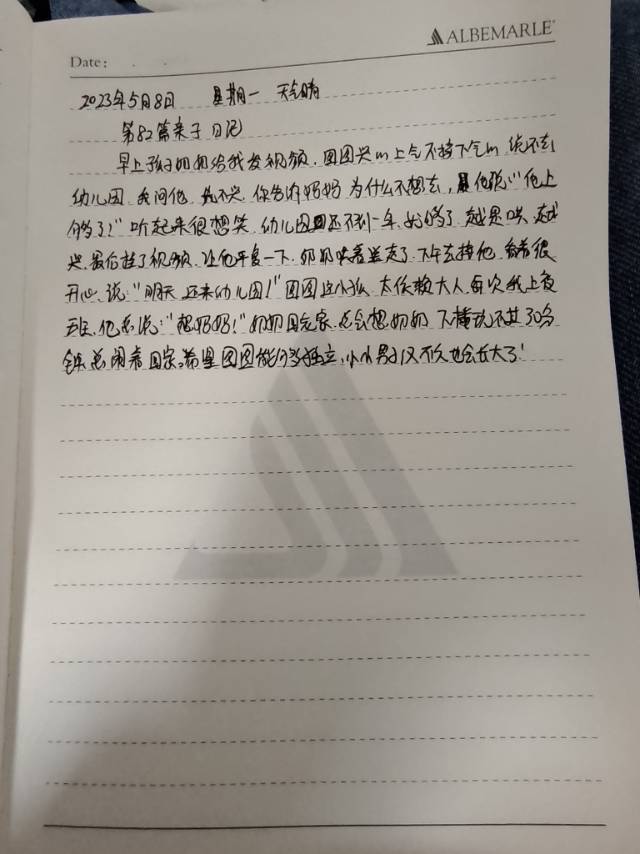 ALBEMARLE®
Date:
2023年5月8日 星期一 天气晴
第82篇亲子日记
早上奶奶给我发视频，团团哭的上气不接下气的，说不去
幼儿园，我问他，先不哭，你告诉妈妈为什么不想去，他说:"他上
够了!"听起来很想笑，幼儿园还不到一年，好够了，越是哄，越
哭，最后挂了视频，让他平复一下，奶奶哄着送走了，下午去接他，看着很
开心，说:"明天还来幼儿园!"团团这小孩，太依赖大人，每次我上夜
班，他总说:"想妈妈!"奶奶回老家，总会想奶奶，下楼玩不其30分
钟，总闹着回家，希望团团能independent独立，小小男子汉不久也会长大了!